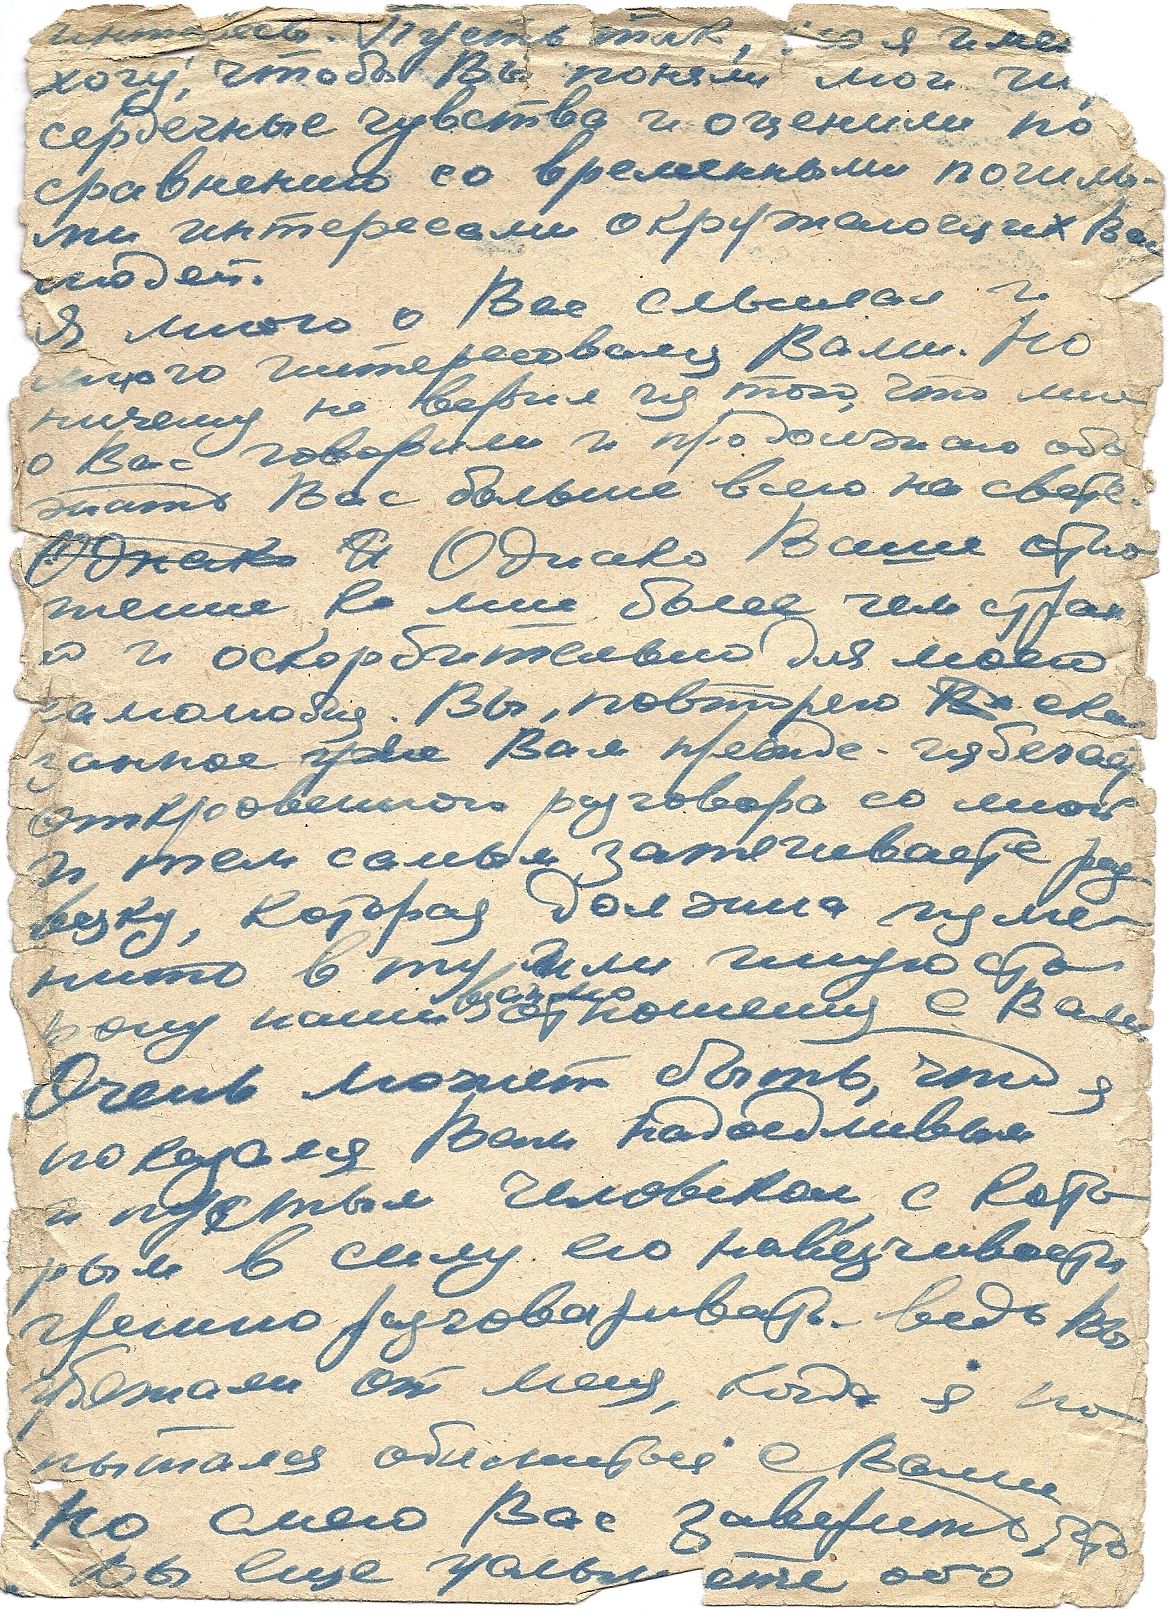 Пусть так, но я
хочу, чтобы Вы поняли мои
сердечные чувства и оценили по
сравнению со временными
ми интересами окружающих Ва
людей.
Я много о Вас слышал и
много интересовался Вами. Но
ничему не верил из того, что мне
о Вас говорили и продолжаю обо
жать Вас больше всего на свете.
Однако И Однако Ваше отно
шение ко мне более чем стран
но и оскорбительно для моего
самолюбия. Вы, повторяю ска
занное уже Вам прежде - избегаете
откровенного разговора со мной
и тем самым затягиваете раз
вязку, которая должна изме-
нить в ту или иную сто
рону наши взаимоотношения с Вами
Очень может быть, что я
показался Вам надоедливым
и пустым человеком, с кото
рым в силу его навязчивости
грешно разговаривать - ведь Вы
убежали от меня, когда я по
пытался объясниться с Вами
Но смею Вас заверить, что
Вы еще услышите обо